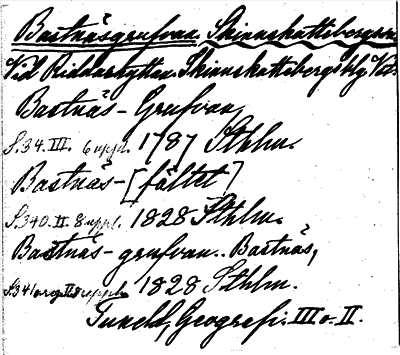 Bastnäsgrufvan. Skinnskattebergs
Vid Riddarhyttan. Skinnskattebergs blg. Vm.
Bastnäs-Grufvan,
S. 34. III. 6 uppl. 1787 Sthlm.
Bastnäs-[fältet]
S. 340. II. 8 uppl. 1828 Sthlm.
Bastnäs-grufvan. Bastnäs,
S. 341 o II 8 uppl. 1828 Sthlm.
Tuneld, Geografi. III o. II.